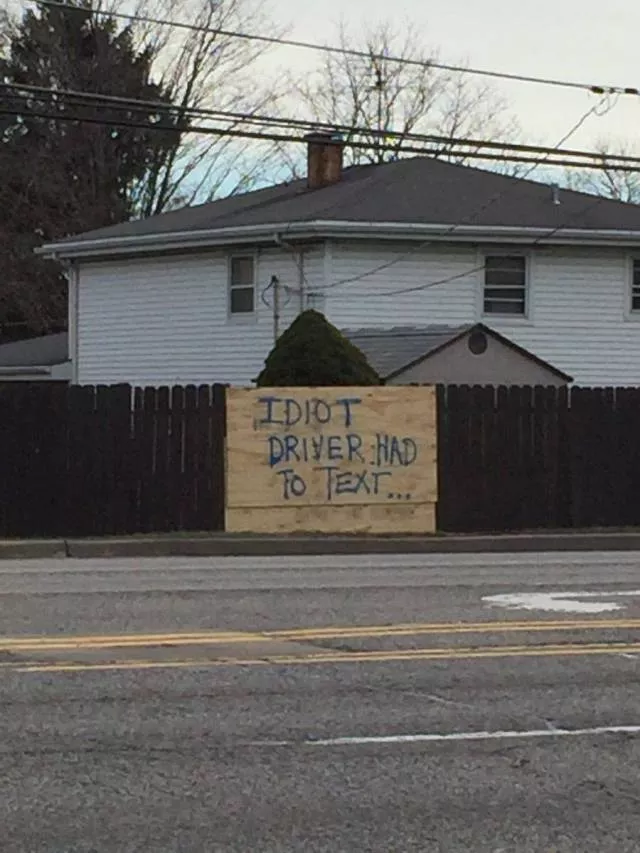 IDIOT
DRIVER HAD
TO TEXT...